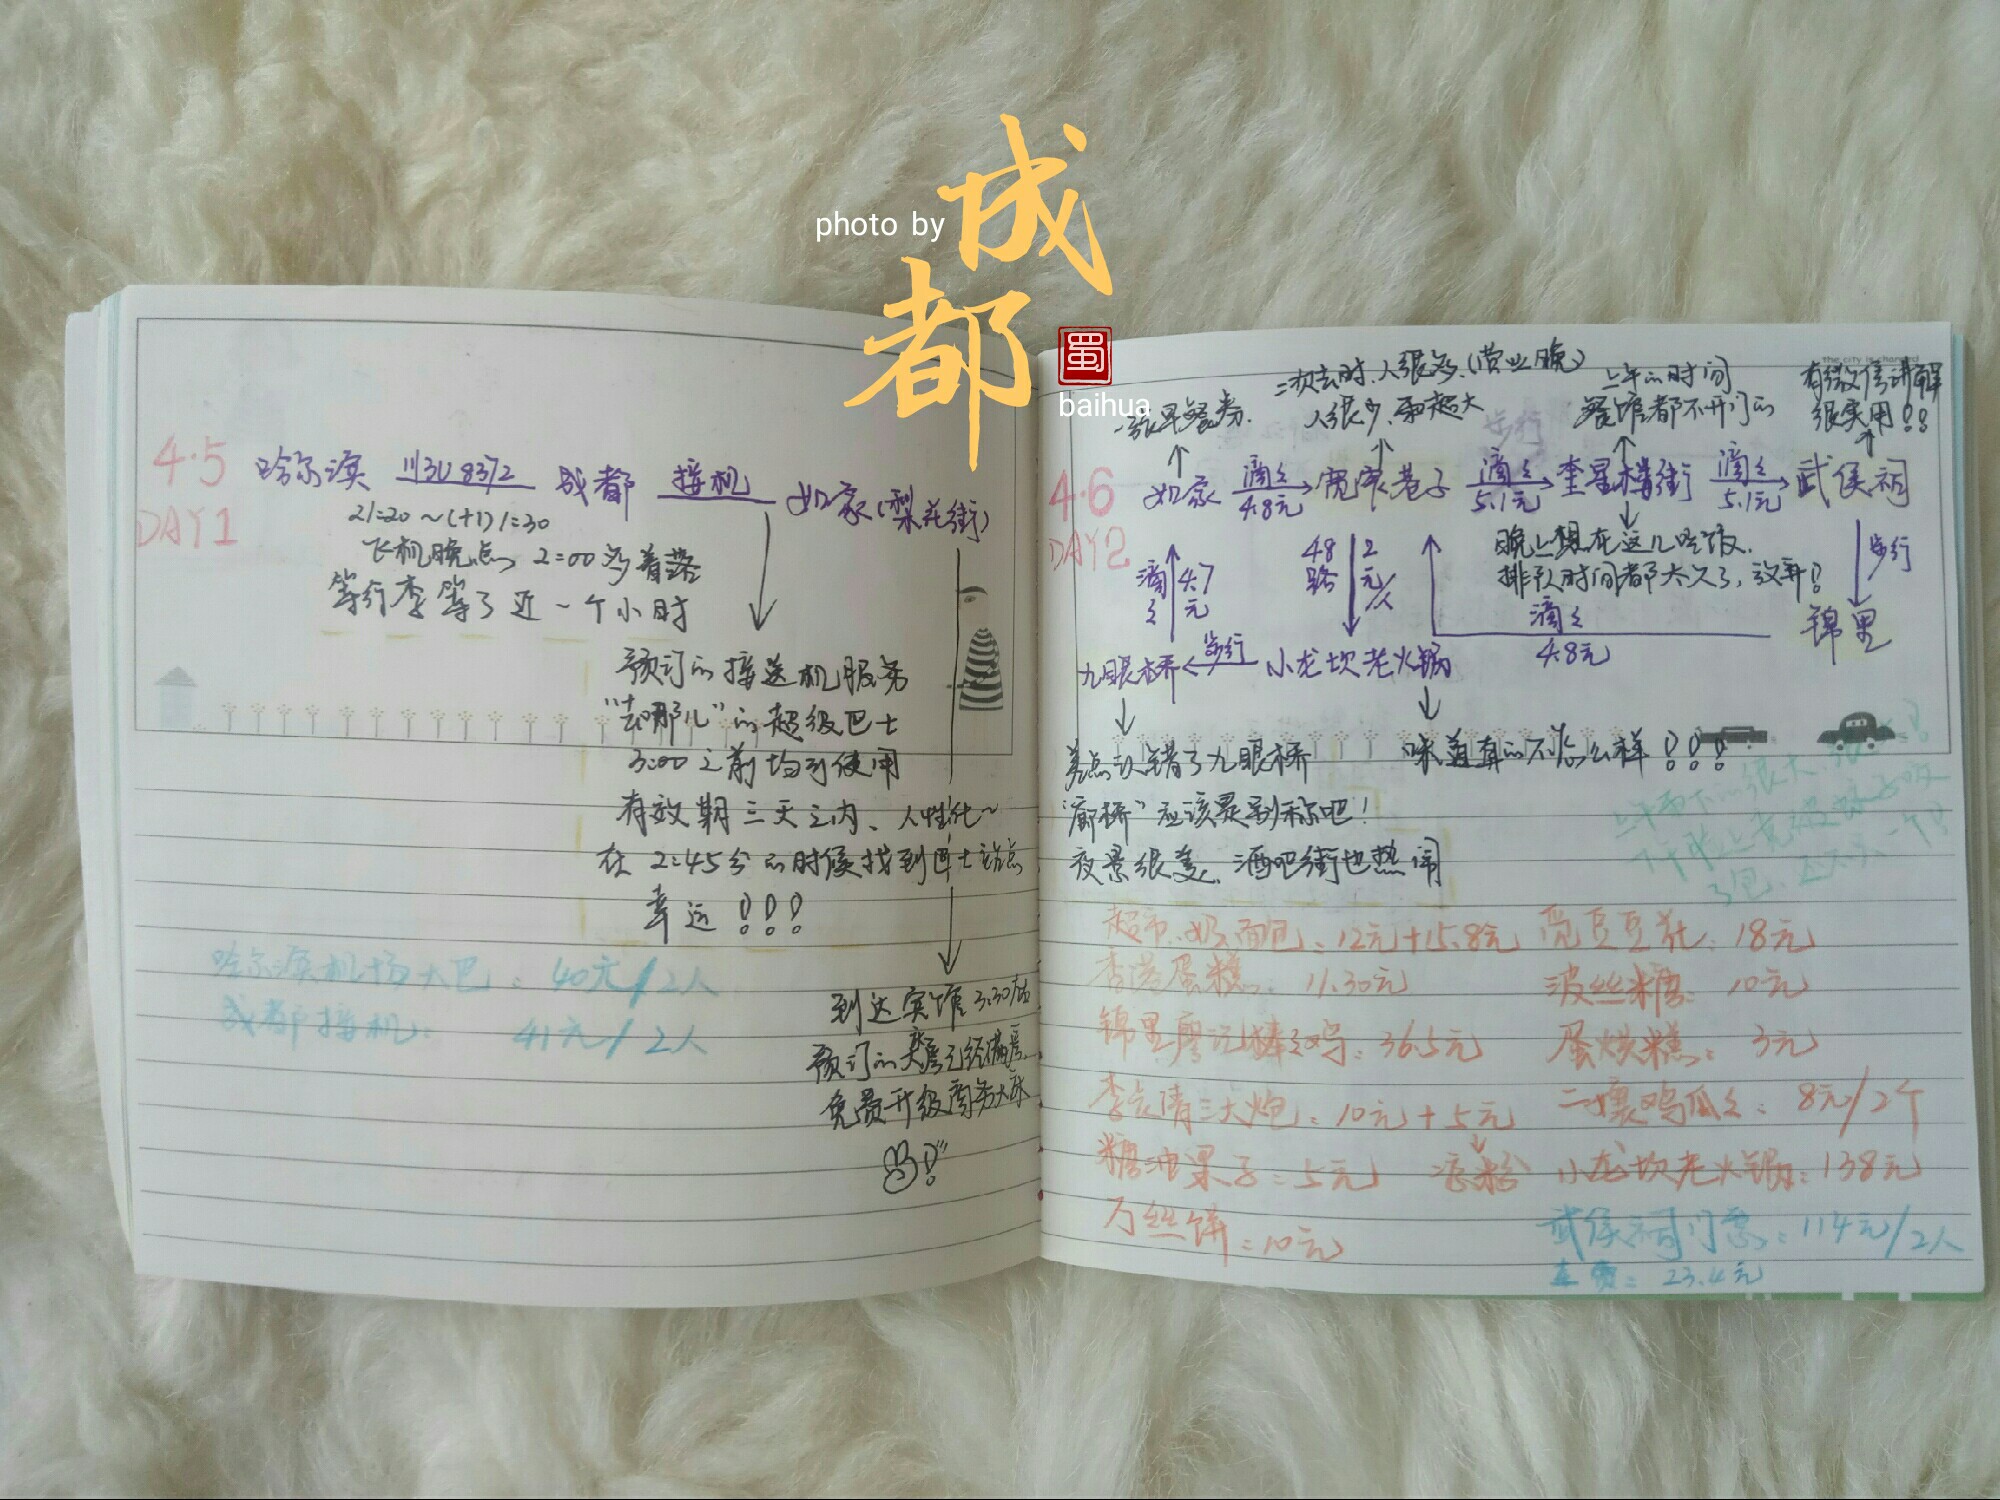 photo by
成都
蜀
baihua
4.5
DAY1
哈尔滨 川3U8372 成都 接机 如家(梨花街)
21:20~(+1)1:30
飞机晚点,2:00多着落
等行李等了近一个小时
预订的接送机服务
“去哪儿”的超级巴士
3:00之前均可使用
有效期三天之内、人性化~
在2:45分的时候找到巴士站点
幸运!!!
哈尔滨机场大巴:40元/2人
成都接机: 41元/2人
到达宾馆3:30左右
预订的房已经满房
免费升级商务大床
the city is charged
一张早餐券.
二次去时,人很多.(营业晚)
人很少,面超大
上午的时间
餐馆都不开门的
有微信讲解
很实用!!
4.6
DAY2
如家 滴滴 4.8元 宽窄巷子 滴滴 5.1元 奎星楼街 滴滴 5.1元 武侯祠
晚上想在这儿吃饭.
排队时间都太久了,放弃!
步行
锦里
滴滴
4.8元
48路
2元/人
小龙坎老火锅
步行
九眼桥
滴滴
4.7元
味道真的不怎么样!!!
差点找错了九眼桥
“廊桥”应该是别称吧!
夜景很美,酒吧街也热闹
超市.奶.面包:12元+15.8元
香港蛋糕:11.30元
锦里廖记棒棒鸡:36.5元
李长清三大炮:10元+5元
凉粉
糖油果子:5元
万丝饼:10元
觅豆豆花:18元
波丝糖:10元
蛋烘糕:3元
二嬢鸡爪爪:8元/2个
小龙坎老火锅:138元
武侯祠门票:114元/2人
车费:23.4元